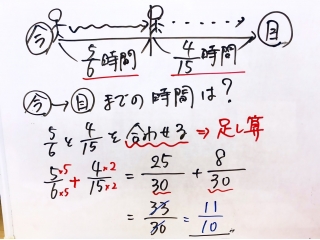 今 目
5/6時間 4/15時間
今→目 までの時間は?
5/6と4/15を合わせる ⇒ 足し算
5×5/6×5 + 4×2/15×2 = 25/30 + 8/30
= 33/30 = 11/10